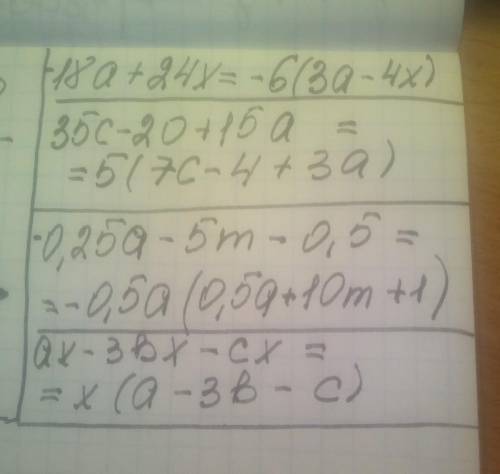 -18a+24x=-6(3a-4x)
35c-20+15a =
=5(7c-4+3a)
-0,25a-5m-0,5=
=-0,5a(0,5a+10m+1)
ax-3bx-cx=
=x(a-3b-c)